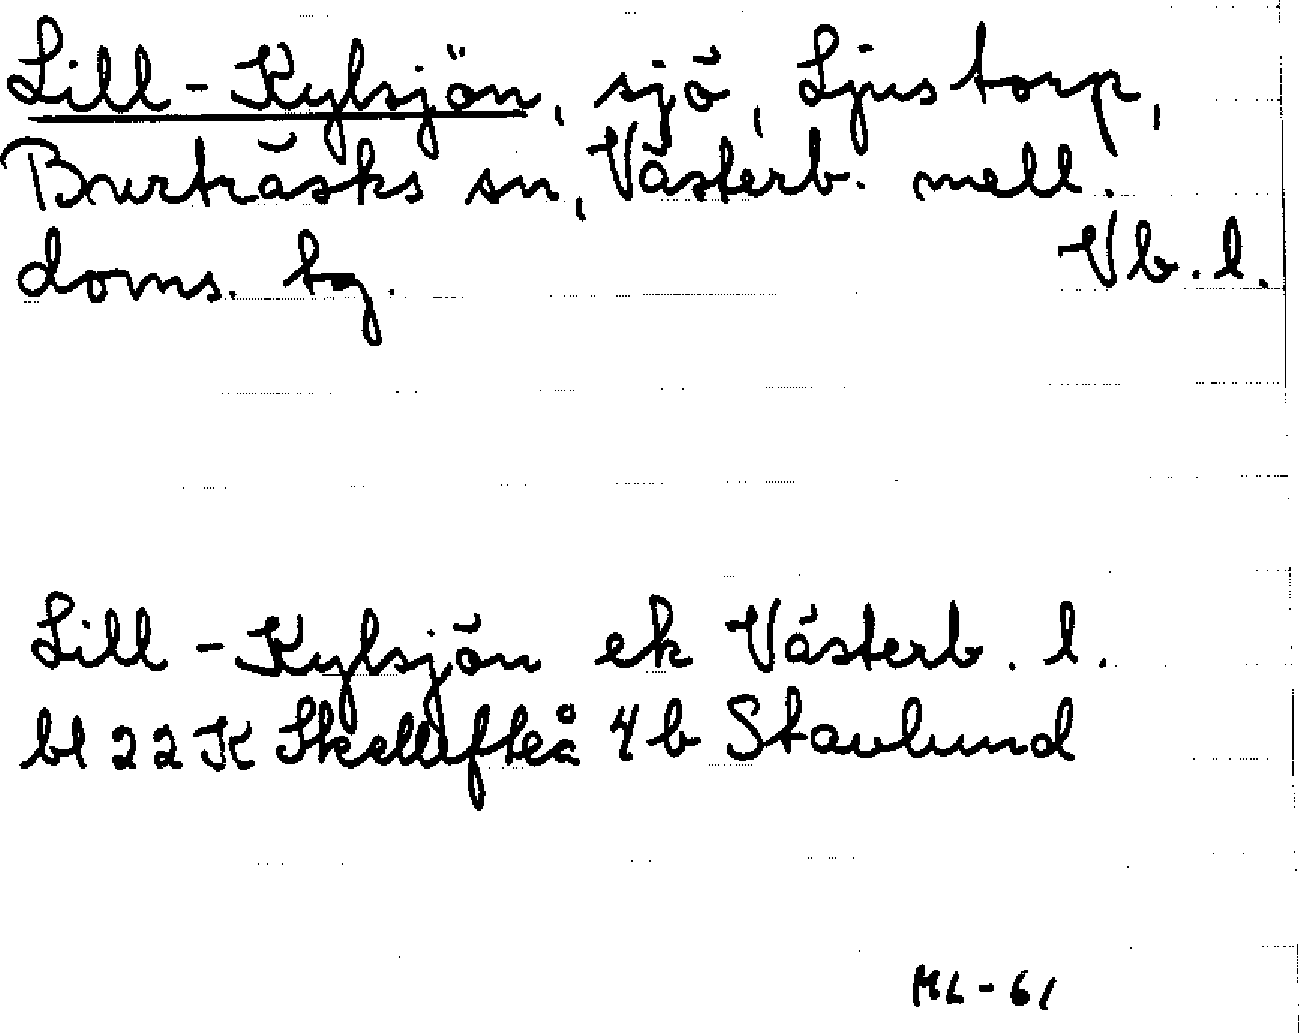 Lill-Kylsjön, sjö, Ljustorp,
Burträsks sn, Västerb. mell.
doms. tg. Vb. l.
Lill-Kylsjön ek Västerb. l.
bl 22 K Skellefteå 4 b Stavlund
ML-61